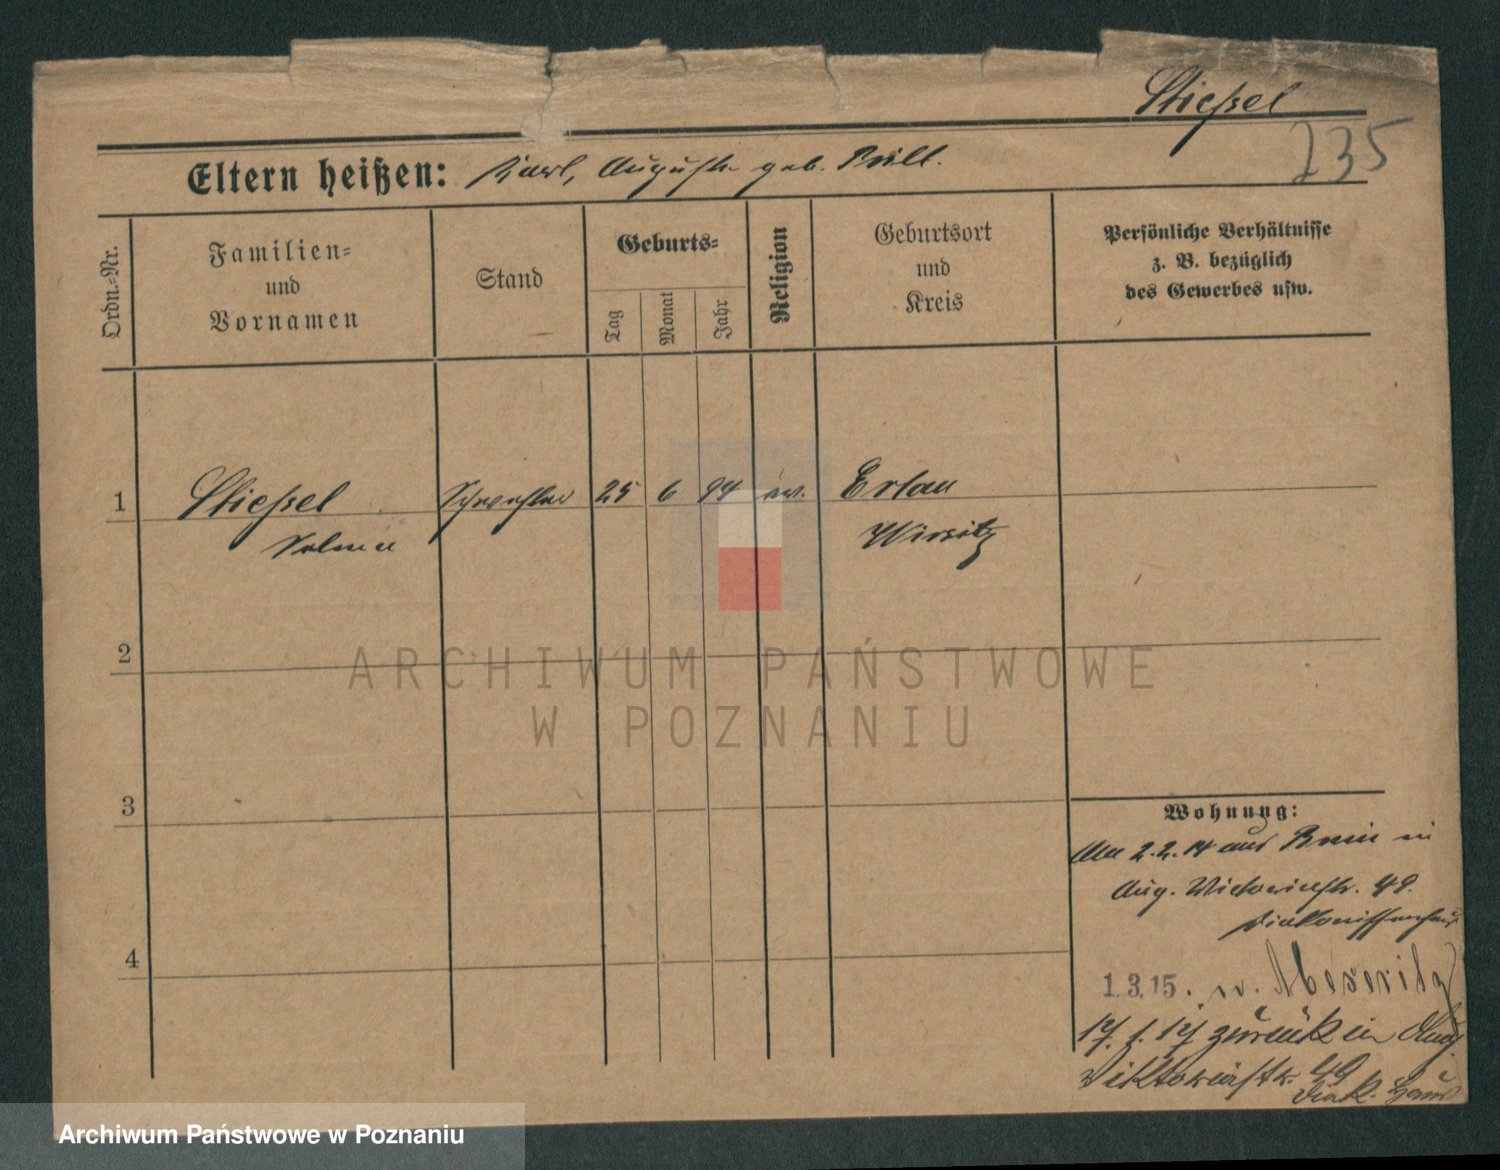 Stießel
235
Eltern heißen: Karl, Auguste geb. Brill.
Ordn.-Nr.
Familien-
und
Vornamen
Stand
Geburts-
Tag
Monat
Jahr
Religion
Geburtsort
und
Kreis
Persönliche Verhältnisse
z. B. bezüglich
des Gewerbes usw.
1 Stießel Schwester 25 6 94 ev. Erlau
Selma Wirsitz
2
ARCHIWUM PAŃSTWOWE
W POZNANIU
3
4
Wohnung:
2.2.14 aus Bnin in
Aug. Victoriastr. 49.
Diakonissenhaus
1.3.15. n. Meseritz
17.1.17 zurück in Aug.
Viktoriastr. 49
Diak. Haus
Archiwum Państwowe w Poznaniu